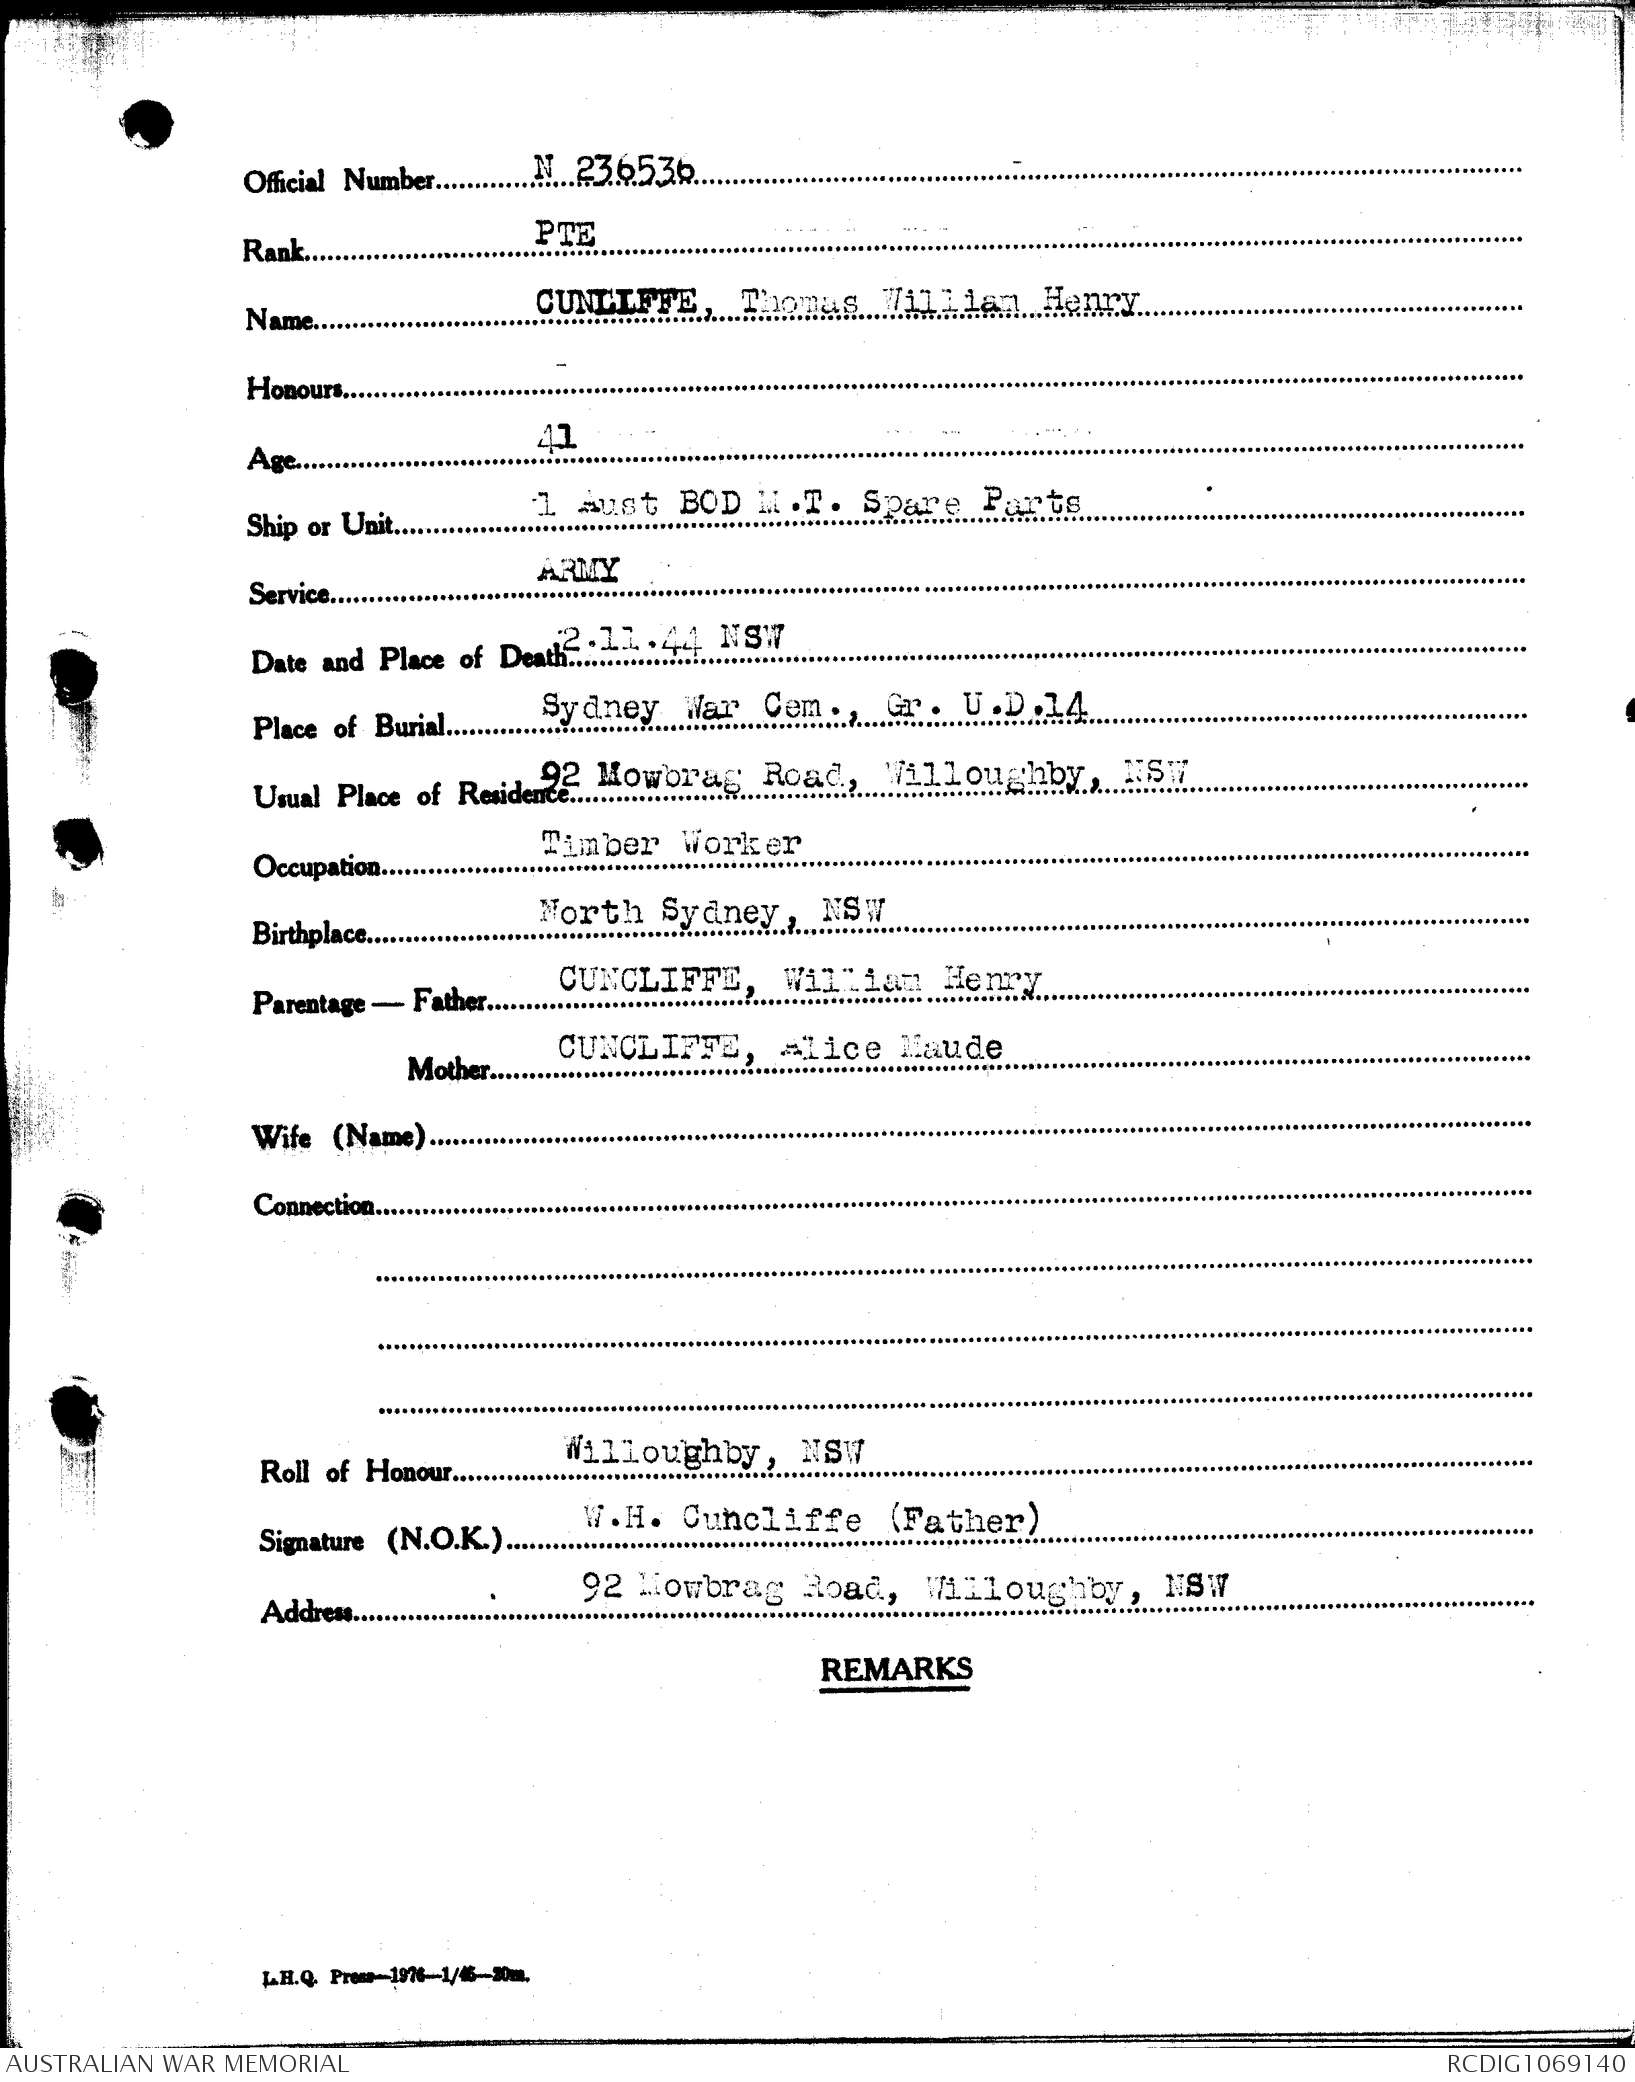 Official Number N 236536
Rank PTE
Name CUNCLIFFE, Thomas William Henry
Honours -
Age 41
Ship or Unit 1 Aust BOD M.T. Spare Parts
Service ARMY
Date and Place of Death 2.11.44 NSW
Place of Burial Sydney War Cem., Gr. U.D.14
Usual Place of Residence 92 Mowbrag Road, Willoughby, NSW
Occupation Timber Worker
Birthplace North Sydney, NSW
Parentage — Father CUNCLIFFE, William Henry
Mother CUNCLIFFE, Alice Maude
Wife (Name)
Connection
Roll of Honour Willoughby, NSW
Signature (N.O.K.) W.H. Cuncliffe (Father)
Address 92 Mowbrag Road, Willoughby, NSW
REMARKS
L.H.Q. Press—1976—1/45—20m.
AUSTRALIAN WAR MEMORIAL
RCDIG1069140